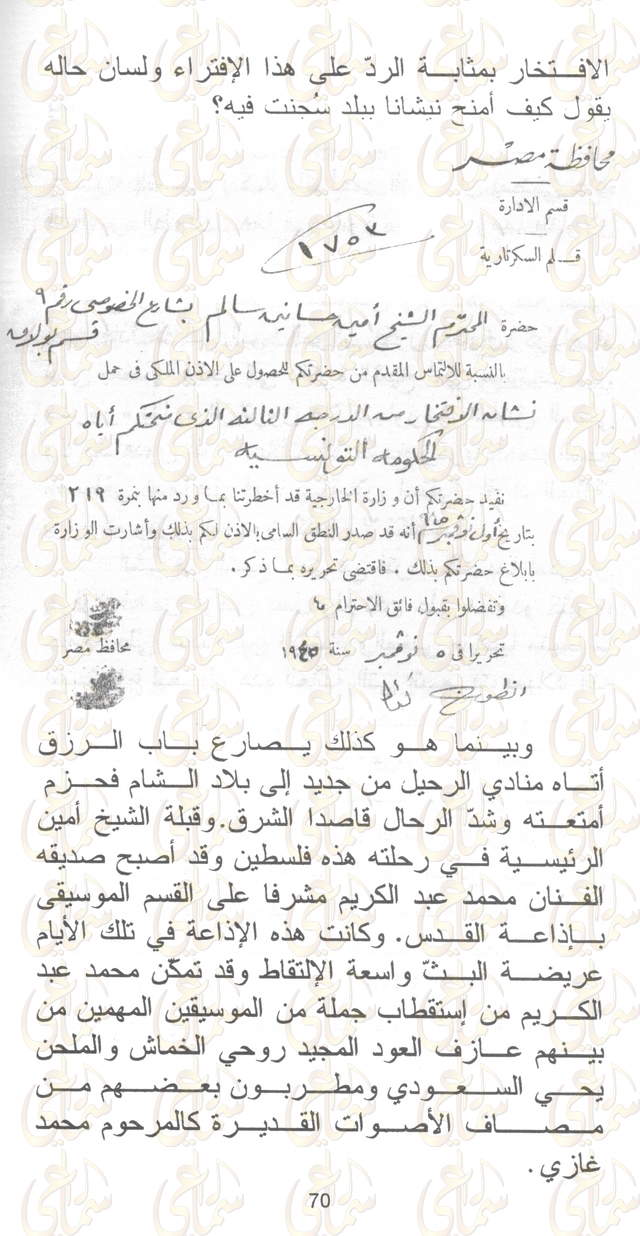 الافتخار بمثابة الردّ على هذا الإفتراء ولسان حاله
يقول كيف أمنح نيشانا ببلد سُجنت فيه؟
محافظة مصر
قسم الادارة
قلم السكرتارية
١٧٥٣
حضرة المحترم الشيخ أمين حسانين سالم بشارع الخصوصى رقم ٩
قسم بولاق
بالنسبة للالتماس المقدم من حضرتكم للحصول على الاذن الملكى فى حمل
نشان الافتخار من الدرجة الثالثة الذى منحتكم أياه
الحكومة التونسية
نفيد حضرتكم أن وزارة الخارجية قد أخطرتنا بما ورد منها بنمرة ٢١٩
بتاريخ أول نوفمبر أنه قد صدر النطق السامى بالاذن لكم بذلك وأشارت الوزارة
بابلاغ حضرتكم بذلك . فاقتضى تحريره بما ذكر .
وتفضلوا بقبول فائق الاحترام
تحريرا فى ٥ نوفمبر سنة
محافظ مصر
وبينما هو كذلك يصارع باب الرزق
أتاه منادي الرحيل من جديد إلى بلاد الشام فحزم
أمتعته وشدّ الرحال قاصدا الشرق.وقبلة الشيخ أمين
الرئيسية في رحلته هذه فلسطين وقد أصبح صديقه
الفنان محمد عبد الكريم مشرفا على القسم الموسيقى
بإذاعة القدس. وكانت هذه الإذاعة في تلك الأيام
عريضة البثّ واسعة الإلتقاط وقد تمكّن محمد عبد
الكريم من إستقطاب جملة من الموسيقين المهمين من
بينهم عازف العود المجيد روحي الخماش والملحن
يحي السعودي ومطربون بعضهم من
مصاف الأصوات القديرة كالمرحوم محمد
غازي.
70